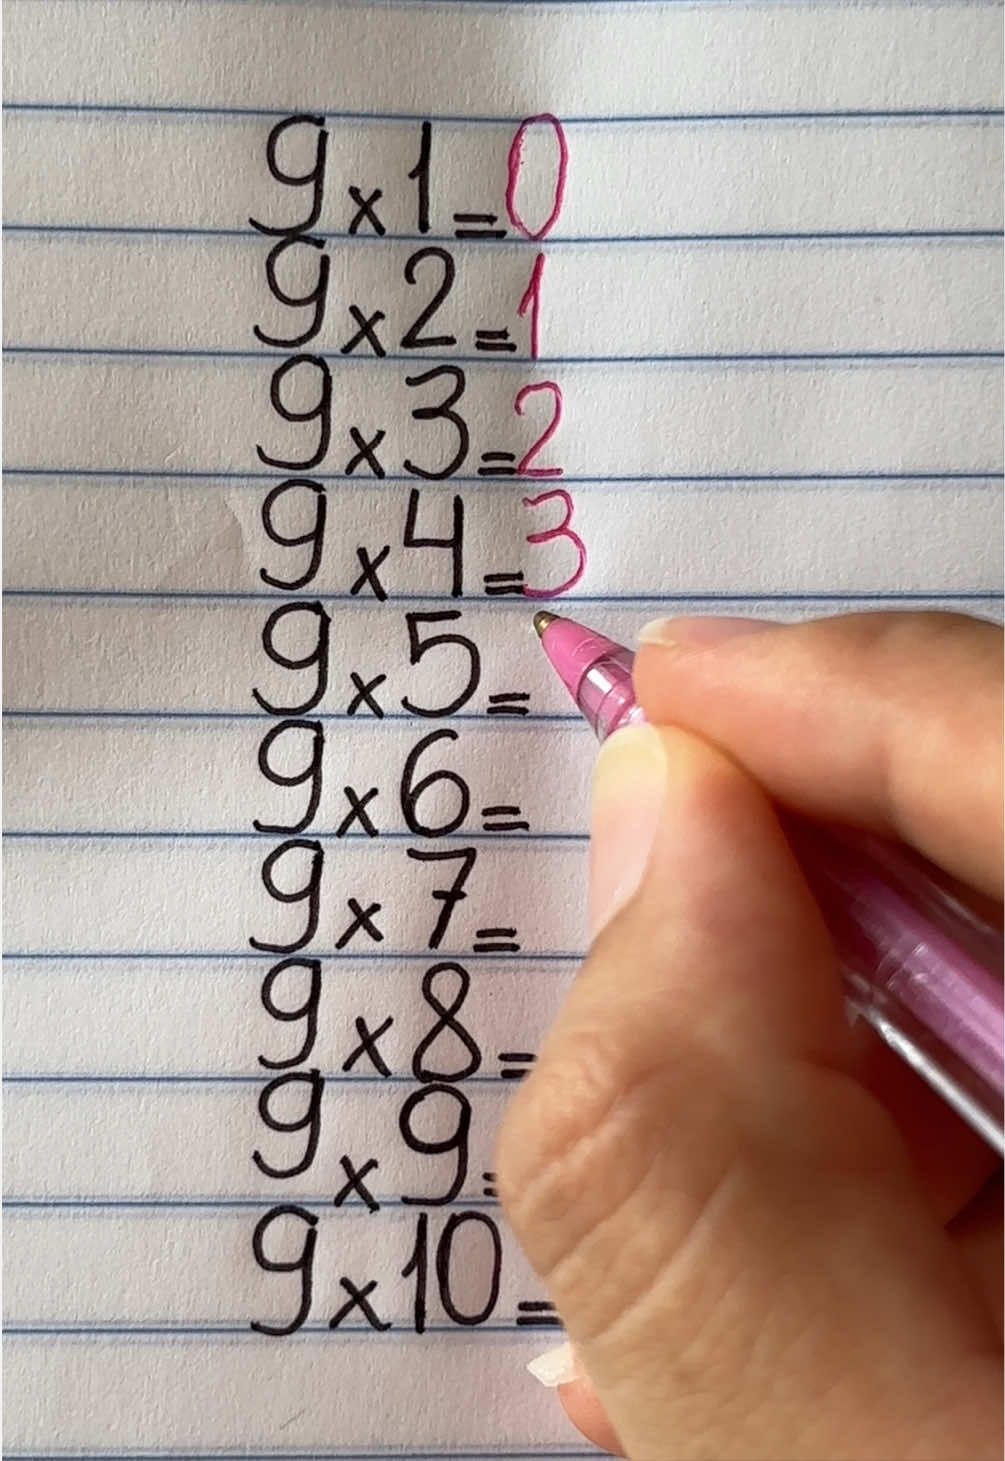 9x1=0
9x2=1
9x3=2
9x4=3
9x5=
9x6=
9x7=
9x8=
9x9=
9x10=